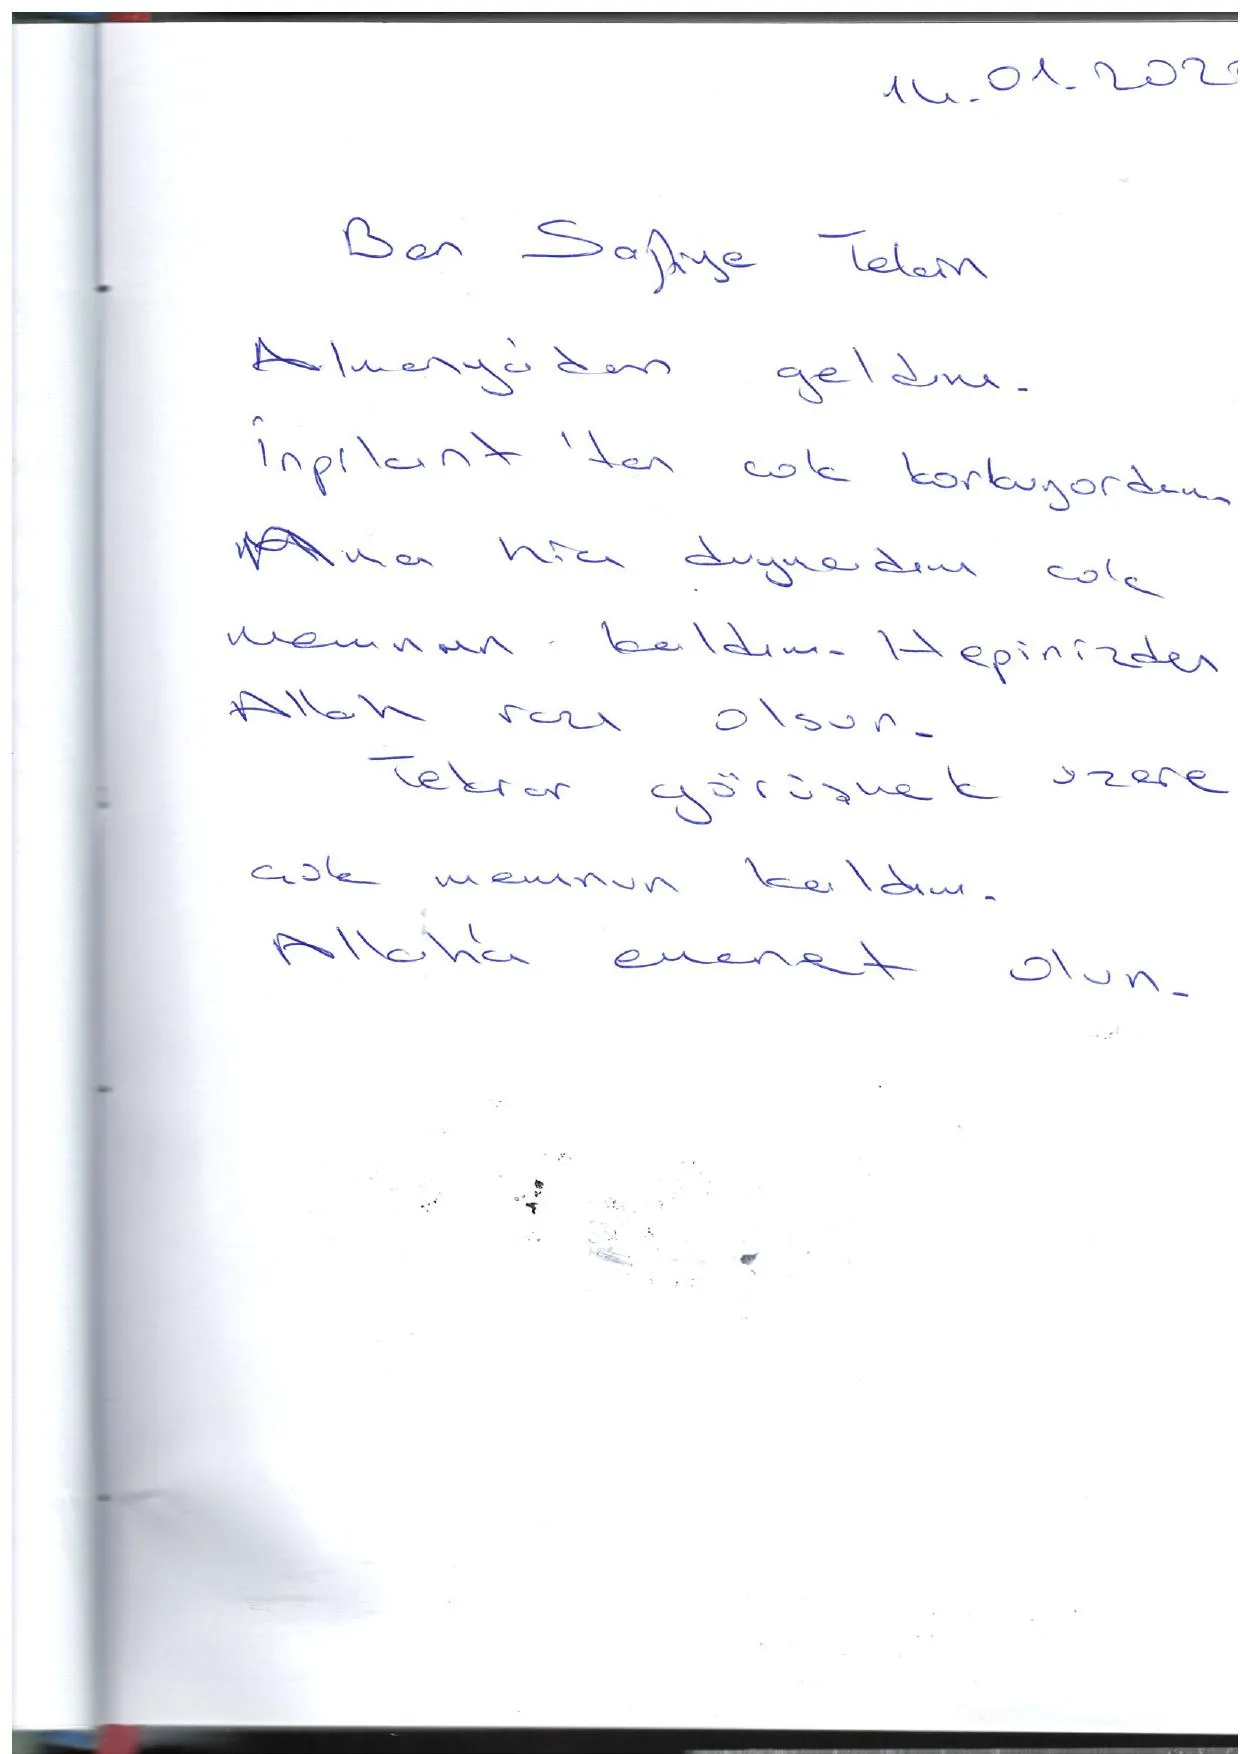 14.01.202
Ben Safiye Tekin
Almanya'dan geldim.
İnpilant'tan cok korkuyordum.
Ama hiç duymadım cok
memnun kaldım. Hepinizden
Allah razı olsun.
Tekrar görüşmek üzere
çok memnun kaldım.
Allah'a emanet olun.